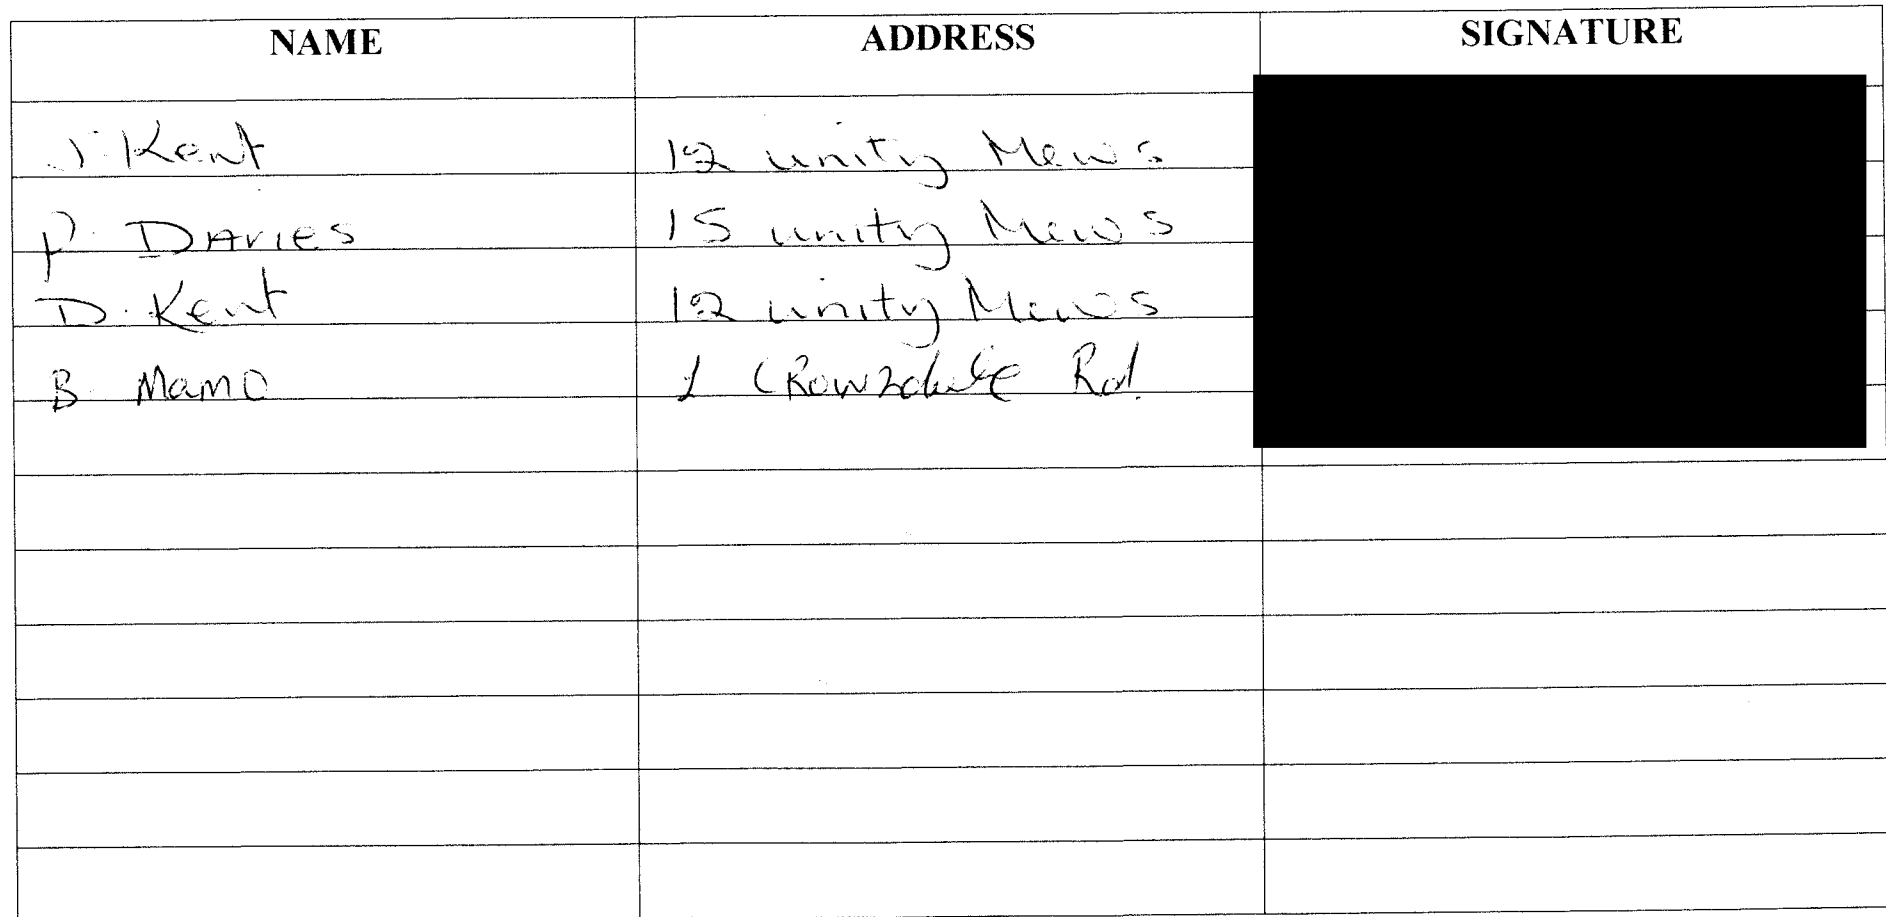 NAME ADDRESS SIGNATURE
J. Kent 12 unity Mews
P. DAVIES 15 unity Mews
D. Kent 12 unity Mews
B. Mamo 1 Rd.